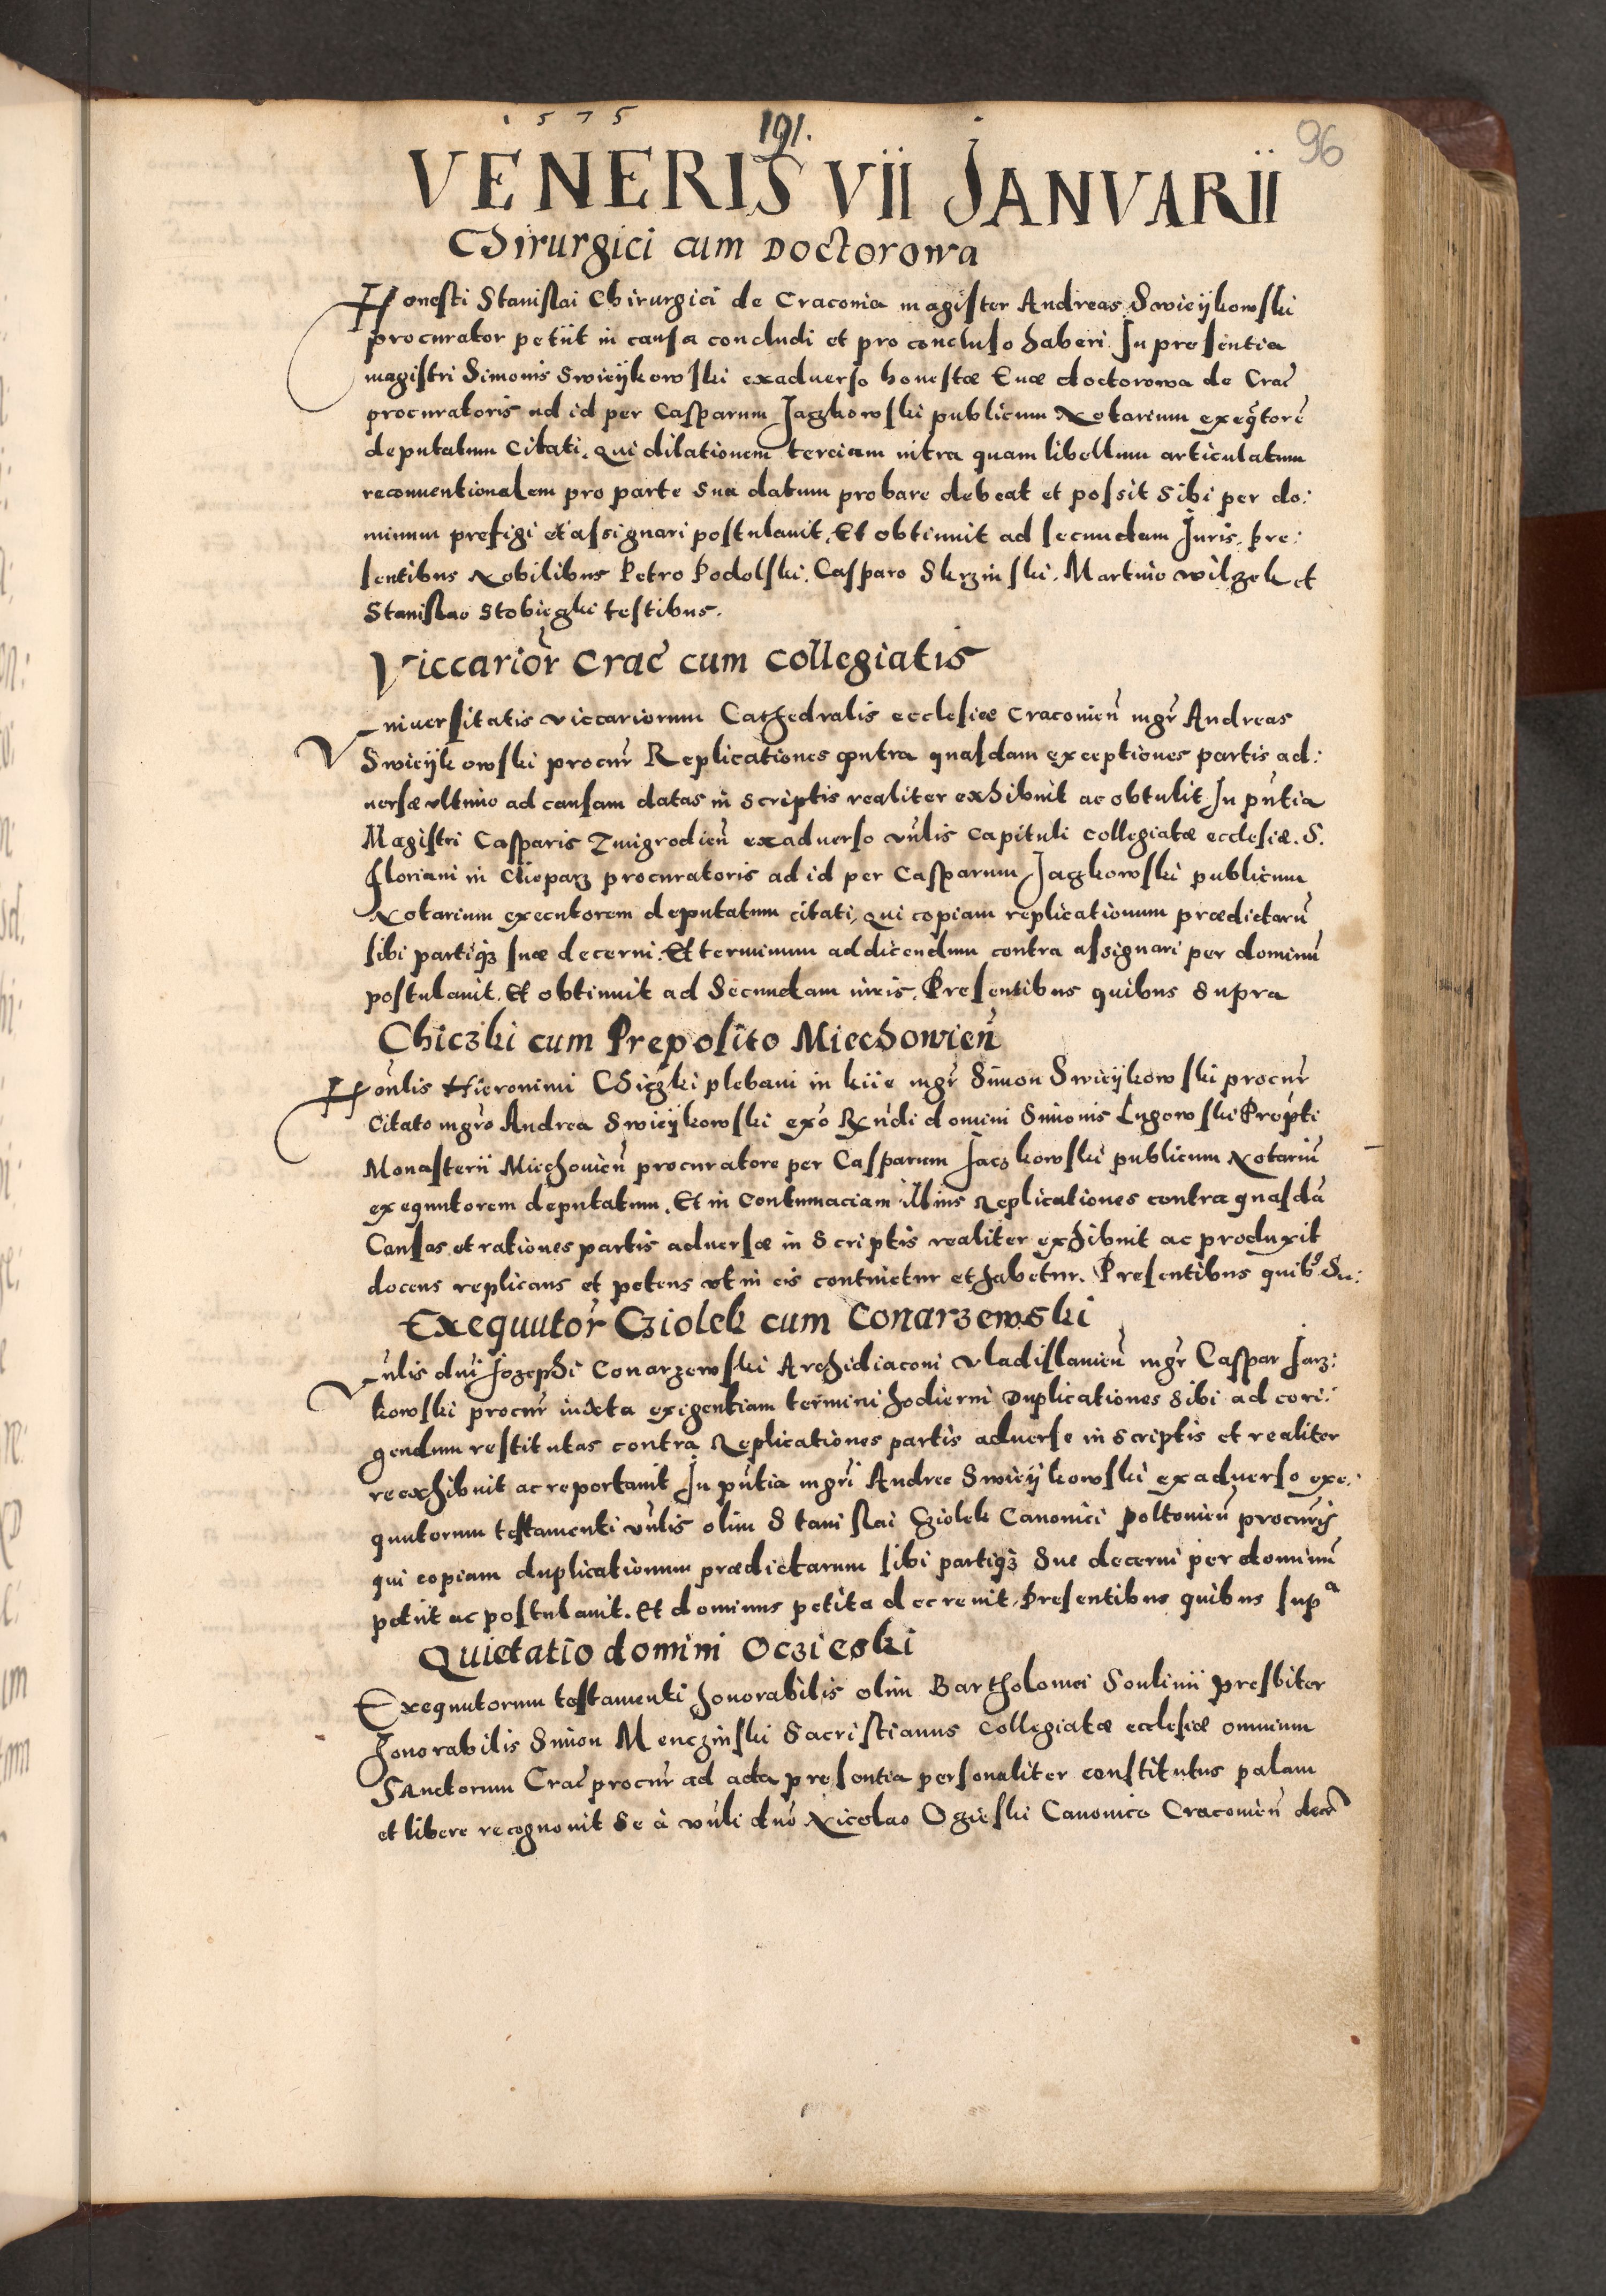 1575
191.
96
VENERIS VII JANVARII
Chirurgici cum Doctorowa
Honesti Stanislai Chirurgici de Craconia magister Andreas Swieÿkowski
procurator petiit in causa concludi et pro concluso haberi In presentia
magistri Simonis Swieÿkowski exaduerso honestæ Euæ doctorowa de Crac̃
procuratoris ad id per Casparum Jaczkowski publicum Notarium exeq̃torẽ
deputatum Citati. Qui dilationem terciam intra quam libellum articulatum
reconuentionalem pro parte sua datum probare debeat et possit sibi per do:
minum prefigi et assignari postulauit. Et obtinuit ad secundam Juris. Pre:
sentibus Nobilibus Petro Podolski. Casparo Skrzinski. Martino Wilzek et
Stanislao Stobieczki testibus.
Viccarior̃ Crac̃ cum Collegiatis
Vniuersitatis viccariorum Cathedralis ecclesiæ Craconien̄ mgr̃ Andreas
Swieÿkowski procur̃ Replicationes contra quasdam exceptiones partis ad:
uersæ vltimo ad causam datas in scriptis realiter exhibuit ac obtulit In pñtia
Magistri Casparis Zmigrodien̄ exaduerso vñlis Capituli Collegiatæ ecclesiæ. S.
Floriani in Clieparz procuratoris ad id per Casparum Jaczkowski publicum
Notarium executorem deputatum citati, Qui copiam replicationum prædictarū
sibi partiqз suæ decerni. Et terminum ad dicendum contra assignari per dominū
postulauit. Et obtinuit ad Secundam iuris. Presentibus quibus supra
Chiczki cum Preposito Miechowien̄
Hoñlis Hieronimi Chiczki plebani in Kiie mgr̃ Simon Swieÿkowski procur̃
Citato mgr̃o Andrea Swieÿkowski exõ Rñdi domini Simonis Lugowski Prep̃ti
Monasterii Miechouien̄ procuratore per Casparum Jaczkowski publicum Notariū
exequutorem deputatum. Et in Contumaciam illius Replicationes contra quasdā
Causas et rationes partis aduersæ in scriptis realiter exhibuit ac produxit
docens replicans et petens vt in eis continetur et habetur. Presentibus quibꝰ Su:
Exequutor̃ Cziolek cum Conarzewski
Vñlis dñi Jozephi Conarzewski Archidiaconi Vladislauien̄ mgr̃ Caspar Jarz:
kowski procur̃ iuxta exigentiam termini hodierni Duplicationes sibi ad cori:
gendum restitutas contra Replicationes partis aduerse in scriptis et realiter
reexhibuit ac reportauit In pñtia mgr̃i Andree Swieÿkowski exaduerso exe:
quutorum testamenti vñlis olim Stanislai Cziolek Canonici Poltouien̄ procur̃is
qui copiam duplicationum prædictarum sibi partiqз sue decerni per dominū
petiit ac postulauit. Et dominus petita decreuit. Presentibus quibus supᵃ
Quietatio domini Oczieski
Exequutorum testamenti honorabilis olim Bartholomei Soulinii presbiter
honorabilis Simon Menczinski Sacristianus Collegiatæ ecclesiæ omnium
Sanctorum Crac̃ procur̃ ad acta presentia personaliter constitutus palam
et libere recognouit se à vñli dño Nicolao Oczieski Canonico Craconien̄